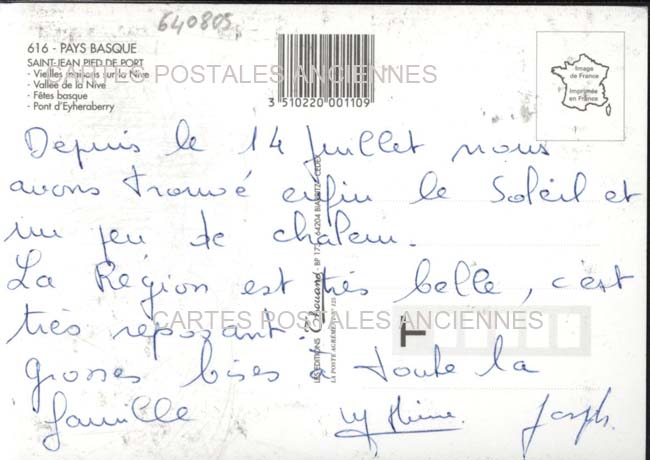 640805
616 - PAYS BASQUE
SAINT-JEAN PIED DE PORT
- Vieilles maisons sur la Nive
- Vallée de la Nive
- Fêtes basque
- Pont d'Eyheraberry
3 510220 001109
Image
de France
Imprimée
en France
CARTES POSTALES ANCIENNES
Depuis le 14 Juillet nous
avons trouvé enfin le Soleil et
un peu de chaleur.
La Région est très belle, c'est
très reposant.
grosses bises à toute la
famille
Joseph
CARTES POSTALES ANCIENNES
LES ÉDITIONS Chouand - BP 173 - 64204 BIARRITZ CEDEX
LA POSTE AGRÉMENT
T